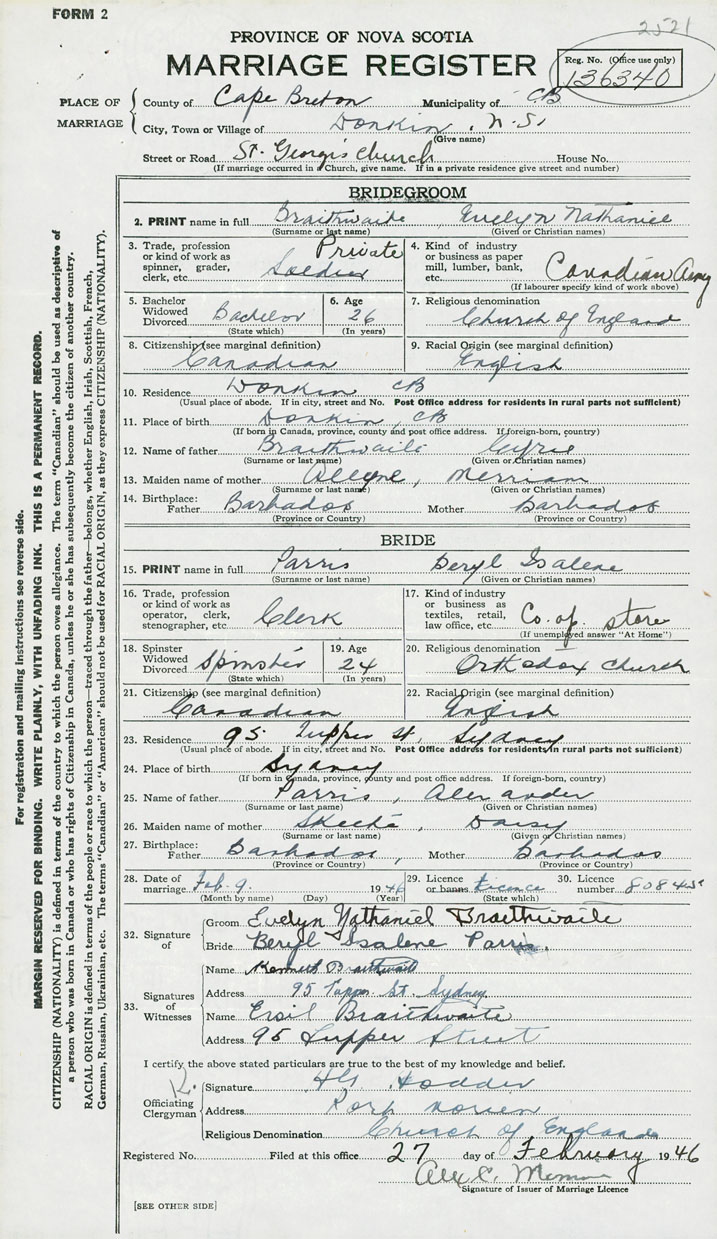 FORM 2
2521
PROVINCE OF NOVA SCOTIA
MARRIAGE REGISTER
Reg. No. (Office use only)
136340
PLACE OF MARRIAGE
County of Cape Breton Municipality of CB
City, Town or Village of Donkin, N.S.
(Give name)
Street or Road St. Georges church House No.
(If marriage occurred in a Church, give name. If in a private residence give street and number)
BRIDEGROOM
2. PRINT name in full Braithwaide, Evelyn Nathaniel
(Surname or last name) (Given or Christian names)
3. Trade, profession or kind of work as spinner, grader, clerk, etc. Private Soldier
4. Kind of industry or business as paper mill, lumber, bank, etc. Canadian Army
(If labourer specify kind of work above)
5. Bachelor Widowed Divorced Bachelor
(State which)
6. Age 26
(In years)
7. Religious denomination
Church of England
8. Citizenship (see marginal definition)
Canadian
9. Racial Origin (see marginal definition)
English
10. Residence Donkin CB
(Usual place of abode. If in city, street and No. Post Office address for residents in rural parts not sufficient)
11. Place of birth Donkin, CB
(If born in Canada, province, county and post office address. If foreign-born, country)
12. Name of father Braithwaite
(Surname or last name) (Given or Christian names)
13. Maiden name of mother Alleyne, Merriam
(Surname or last name) (Given or Christian names)
14. Birthplace:
Father Barbados Mother Barbados
(Province or Country) (Province or Country)
BRIDE
15. PRINT name in full Parris Beryl Isalene
(Surname or last name) (Given or Christian names)
16. Trade, profession or kind of work as operator, clerk, stenographer, etc. Clerk
17. Kind of industry or business as textiles, retail, law office, etc. Co. op. store
(If unemployed answer "At Home")
18. Spinster Widowed Divorced Spinster
(State which)
19. Age 24
(In years)
20. Religious denomination
Orthodox Church
21. Citizenship (see marginal definition)
Canadian
22. Racial Origin (see marginal definition)
English
23. Residence 95 Tupper St, Sydney
(Usual place of abode. If in city, street and No. Post Office address for residents in rural parts not sufficient)
24. Place of birth Sydney
(If born in Canada, province, county and post office address. If foreign-born, country)
25. Name of father Parris, Alexander
(Surname or last name) (Given or Christian names)
26. Maiden name of mother Skeete, Daisy
(Surname or last name) (Given or Christian names)
27. Birthplace:
Father Barbados, Mother Barbados
(Province or Country) (Province or Country)
28. Date of marriage Feb. 9. 1946
(Month by name) (Day) (Year)
29. Licence or banns Licence
(State which)
30. Licence number 80845
32. Signature of
Groom Evelyn Nathaniel Braethwaite
Bride Beryl Isalene Parris
33. Signatures of Witnesses
Name Kenneth Braithwaite
Address 95 Tupper St. Sydney
Name Ersil Braithwaite
Address 95 Tupper Street
I certify the above stated particulars are true to the best of my knowledge and belief.
Officiating Clergyman
Signature Hodder
Address Port Morien
Religious Denomination Church of England
Registered No. Filed at this office 27 day of February 1946
Alex C.
Signature of Issuer of Marriage Licence
[SEE OTHER SIDE]
For registration and mailing instructions see reverse side.
MARGIN RESERVED FOR BINDING. WRITE PLAINLY, WITH UNFADING INK. THIS IS A PERMANENT RECORD.
CITIZENSHIP (NATIONALITY) is defined in terms of the country to which the person owes allegiance. The term "Canadian" should be used as descriptive of
a person who was born in Canada or who has rights of Citizenship in Canada, unless he or she has subsequently become the citizen of another country.
RACIAL ORIGIN is defined in terms of the people or race to which the person—traced through the father—belongs, whether English, Irish, Scottish, French,
German, Russian, Ukrainian, etc. The terms "Canadian" or "American" should not be used for RACIAL ORIGIN, as they express CITIZENSHIP (NATIONALITY).